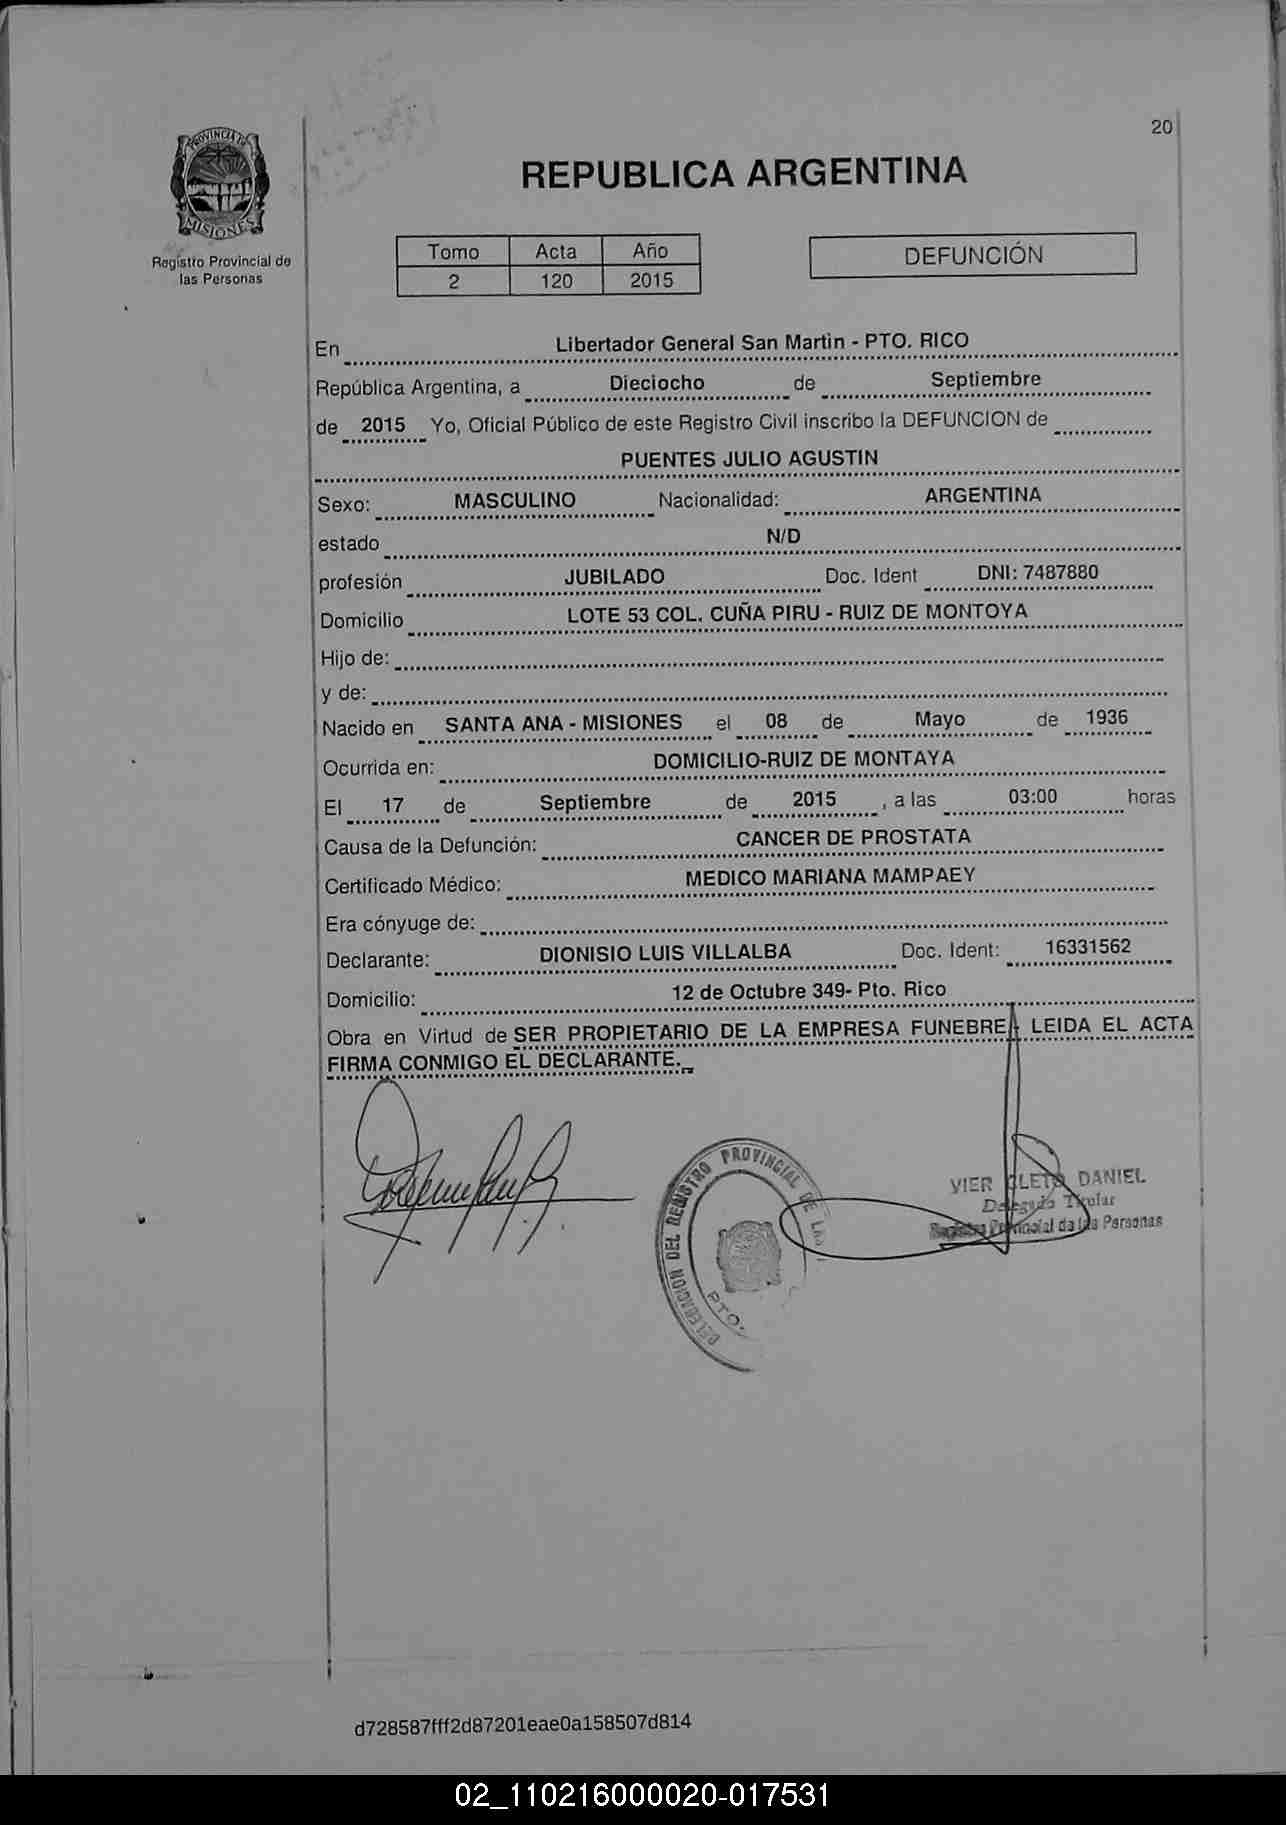 20
PROVINCIA DE
MISIONES
Registro Provincial de
las Personas
REPUBLICA ARGENTINA
Tomo Acta Año
2 120 2015
DEFUNCIÓN
En Libertador General San Martin - PTO. RICO
República Argentina, a Dieciocho de Septiembre
de 2015 Yo, Oficial Público de este Registro Civil inscribo la DEFUNCION de
PUENTES JULIO AGUSTIN
Sexo: MASCULINO Nacionalidad: ARGENTINA
estado N/D
profesión JUBILADO Doc. Ident DNI: 7487880
Domicilio LOTE 53 COL. CUÑA PIRU - RUIZ DE MONTOYA
Hijo de:
y de:
Nacido en SANTA ANA - MISIONES el 08 de Mayo de 1936
Ocurrida en: DOMICILIO-RUIZ DE MONTAYA
El 17 de Septiembre de 2015 , a las 03:00 horas
Causa de la Defunción: CANCER DE PROSTATA
Certificado Médico: MEDICO MARIANA MAMPAEY
Era cónyuge de:
Declarante: DIONISIO LUIS VILLALBA Doc. Ident: 16331562
Domicilio: 12 de Octubre 349- Pto. Rico
Obra en Virtud de SER PROPIETARIO DE LA EMPRESA FUNEBRE. LEIDA EL ACTA
FIRMA CONMIGO EL DECLARANTE.
DELEGACION DEL REGISTRO PROVINCIAL DE LAS
PTO.
VIER CLETO DANIEL
Delegado Titular
Registro Provincial de las Personas
d728587fff2d87201eae0a158507d814
02_110216000020-017531